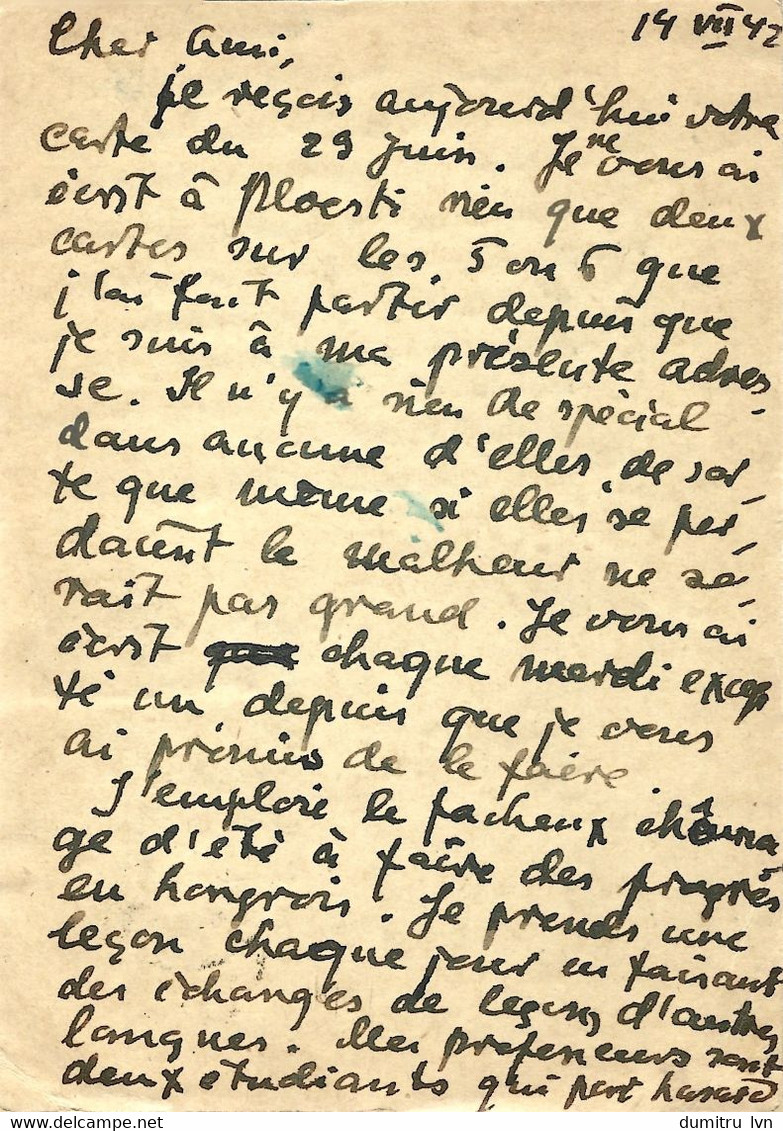 14 VII 42
Cher Ami,
je reçois aujourd'hui votre
carte du 29 Juin. Je ne vous ai
écrit à Ploesti rien que deux
cartes sur les 5 ou 6 que
j'ai fait partir depuis que
je suis à ma présente adres-
se. Il n'y a rien de spécial
dans aucune d'elles, de sor-
te que même si elles se per-
daient le malheur ne se-
rait pas grand. Je vous ai
écrit chaque mardi excep
té un depuis que je vous
ai promis de le faire.
J'emploie le facheux chôma
ge d'été à faire des progrès
en hongrois. Je prends une
leçon chaque jour en faisant
des échanges de leçons d'autres
langues. Mes professeurs sont
deux étudiants qui part hasard
dumitru lvn